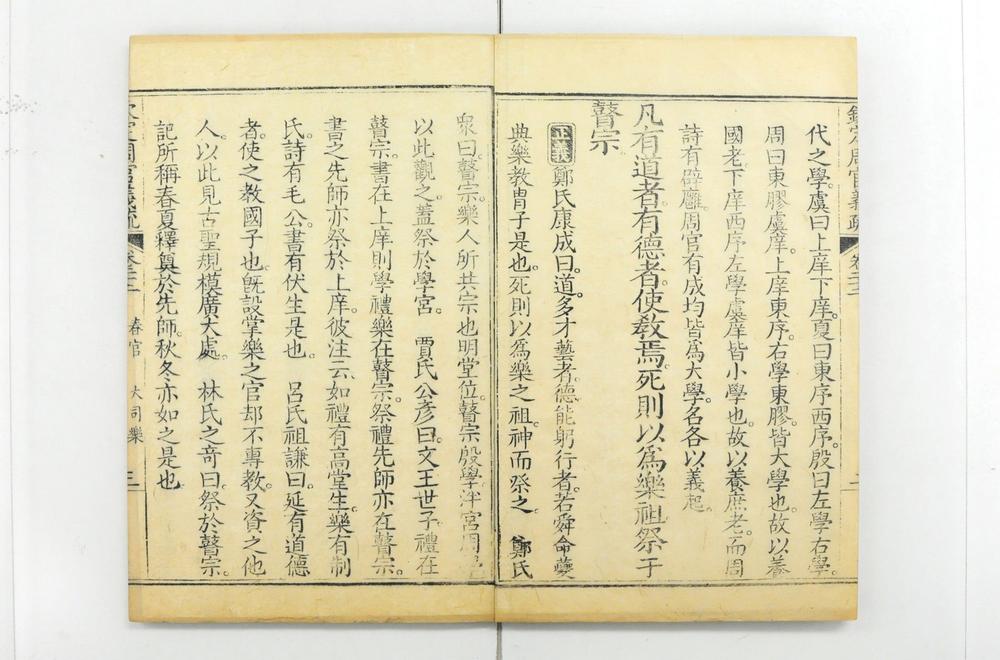 欽定周官義疏 卷二十二
代之學。虞曰上庠下庠。夏曰東序西序。殷曰左學右學。
周曰東膠虞庠。上庠東序。右學東膠。皆大學也。故以養
國老。下庠西序。左學虞庠。皆小學也。故以養庶老。而周
詩有辟廱。周官有成均。皆為大學。名各以義起。
凡有道者有德者。使教焉。死則以為樂祖。祭于
瞽宗
正義 鄭氏康成曰。道。多才藝者。德。能躬行者。若舜命夔
典樂教胄子是也。死則以為樂之祖。神而祭之。 鄭氏
眾曰。瞽宗。樂人所共宗也。明堂位。瞽宗殷學。泮宮周學。
以此觀之。蓋祭於學宮。 賈氏公彥曰。文王世子。禮在
瞽宗。書在上庠。則學禮樂在瞽宗。祭禮先師亦在瞽宗。
書之先師亦祭於上庠。彼注云。如禮有高堂生。樂有制
氏。詩有毛公。書有伏生是也。 呂氏祖謙曰。延有道德
者。使之教國子也。既設掌樂之官。却不專教。又資之他
人。以此見古聖規模廣大處。 林氏之奇曰。祭於瞽宗。
記所稱春夏釋奠於先師。秋冬亦如之是也。
欽定周官義疏 卷二十二 春官 大司樂 三